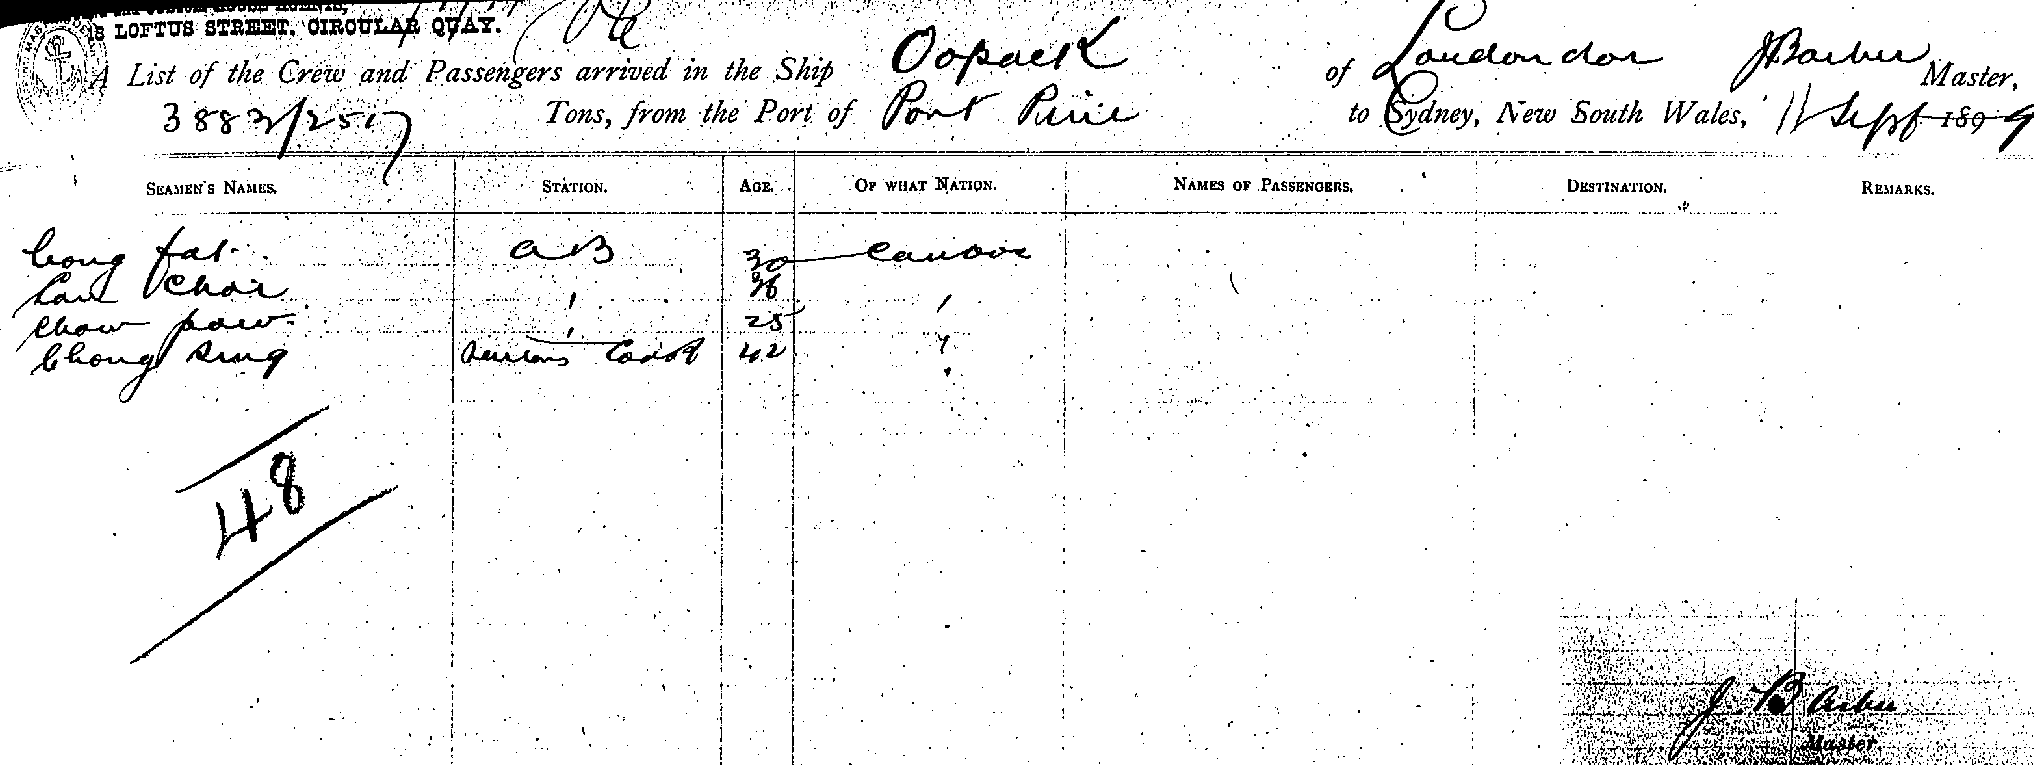 18 LOFTUS STREET, CIRCULAR QUAY.
A List of the Crew and Passengers arrived in the Ship Oopack of London J Barber Master,
3883/2517 Tons, from the Port of Port Pirie to Sydney, New South Wales, 11 Sept 1899
SEAMEN'S NAMES. STATION. AGE. OF WHAT NATION. NAMES OF PASSENGERS. DESTINATION. REMARKS.
Cong fat AB 30 Canton
Lam Choi 36
Chow pow 25
Chong Sing Cook 42
48
J. Barber
Master